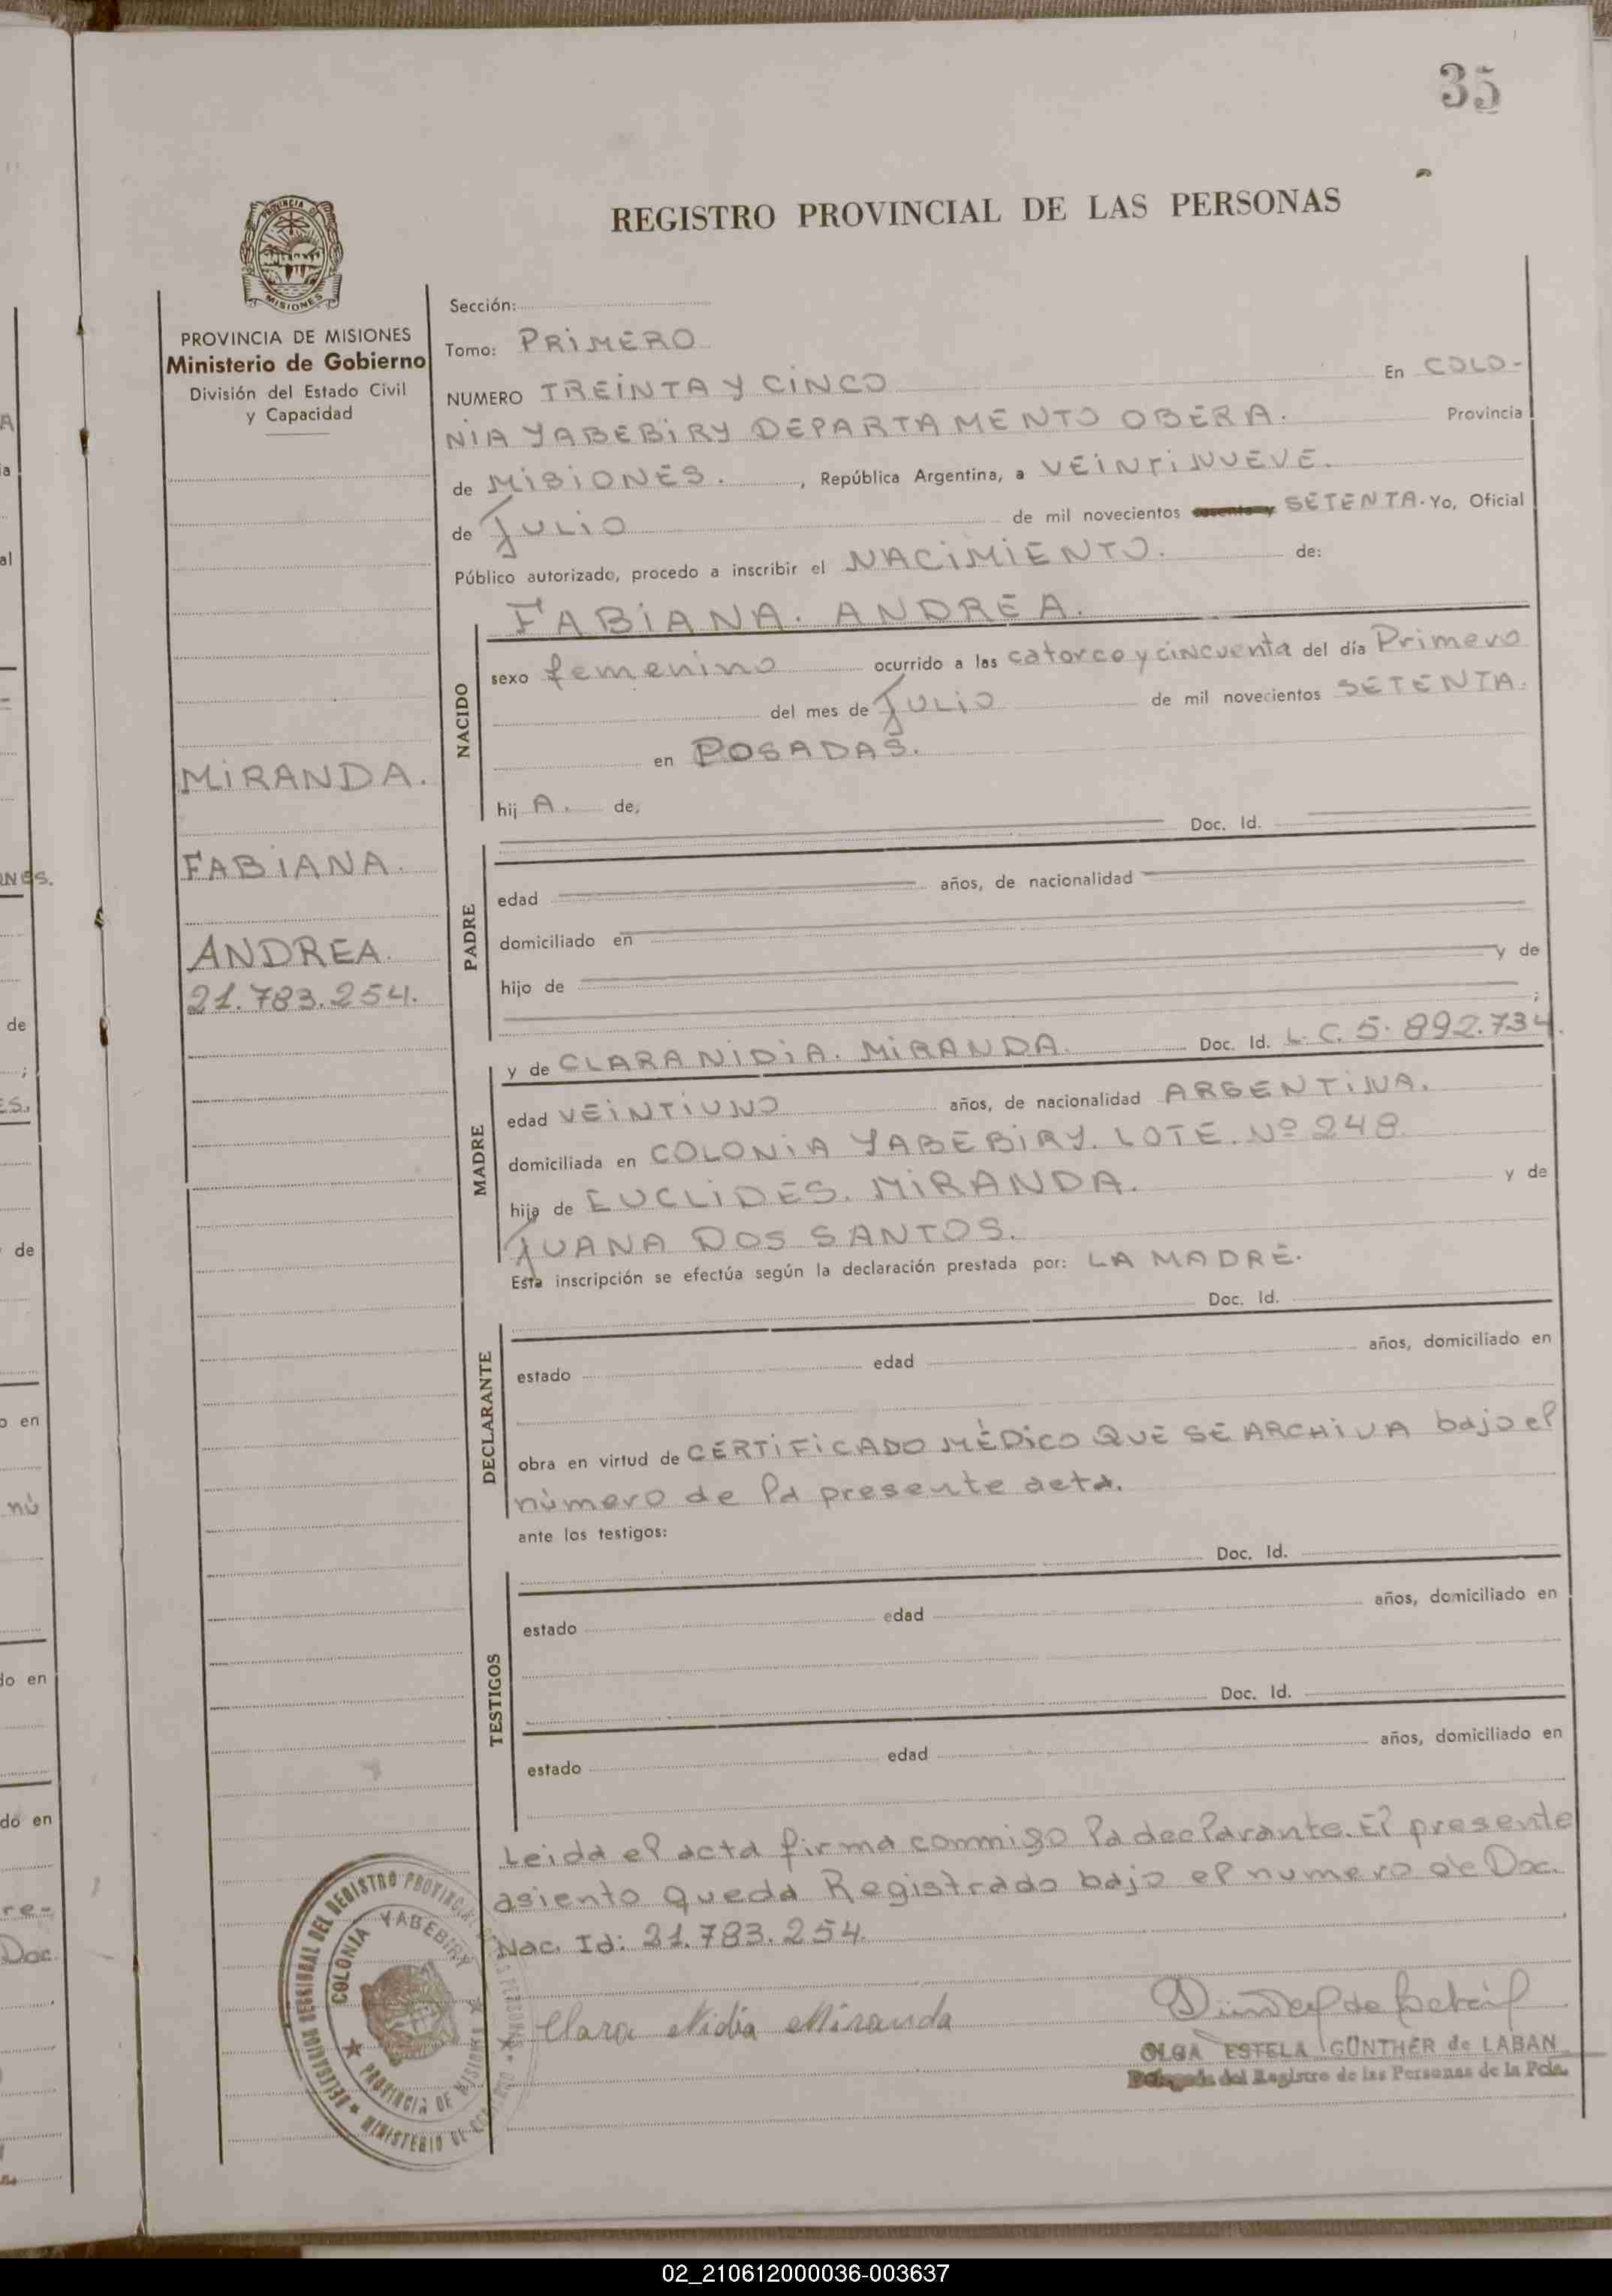 35
REGISTRO PROVINCIAL DE LAS PERSONAS
PROVINCIA
MISIONES
PROVINCIA DE MISIONES
Ministerio de Gobierno
División del Estado Civil
y Capacidad
MIRANDA.
FABIANA.
ANDREA.
21.783.254.
Sección:
Tomo: PRIMERO
NUMERO TREINTA Y CINCO En COLO-
NIA YABEBIRY DEPARTAMENTO OBERA. Provincia
de MISIONES. , República Argentina, a VEINTINUEVE.
de JULIO de mil novecientos SETENTA. Yo, Oficial
Público autorizado, procedo a inscribir el NACIMIENTO. de:
FABIANA. ANDREA.
NACIDO
sexo femenino ocurrido a las catorce y cincuenta del día Primero
del mes de JULIO de mil novecientos SETENTA.
en POSADAS.
hij A. de,
Doc. Id.
PADRE
edad años, de nacionalidad
domiciliado en
hijo de y de
;
y de CLARA NIDIA. MIRANDA. Doc. Id. L. C. 5.892.734.
MADRE
edad VEINTIUNO años, de nacionalidad ARGENTINA.
domiciliada en COLONIA YABEBIRY. LOTE. Nº 248.
hija de EUCLIDES. MIRANDA. y de
JUANA DOS SANTOS.
Esta inscripción se efectúa según la declaración prestada por: LA MADRE.
Doc. Id.
DECLARANTE
estado edad años, domiciliado en
obra en virtud de CERTIFICADO MÉDICO QUE SE ARCHIVA bajo el
número de la presente acta.
ante los testigos:
Doc. Id.
TESTIGOS
estado edad años, domiciliado en
Doc. Id.
estado edad años, domiciliado en
Leida el acta firma conmigo la declarante. El presente
asiento queda Registrado bajo el numero de Doc.
Nac. Id: 21.783.254.
Clara Nidia Miranda
OLGA ESTELA GÜNTHER de LABAN
Delegada del Registro de las Personas de la Pcia.
DELEGACION SECCIONAL DEL REGISTRO PROVINCIAL DE LAS PERSONAS
MINISTERIO DE GOBIERNO
COLONIA YABEBIRY
PROVINCIA DE MISIONES
02_210612000036-003637